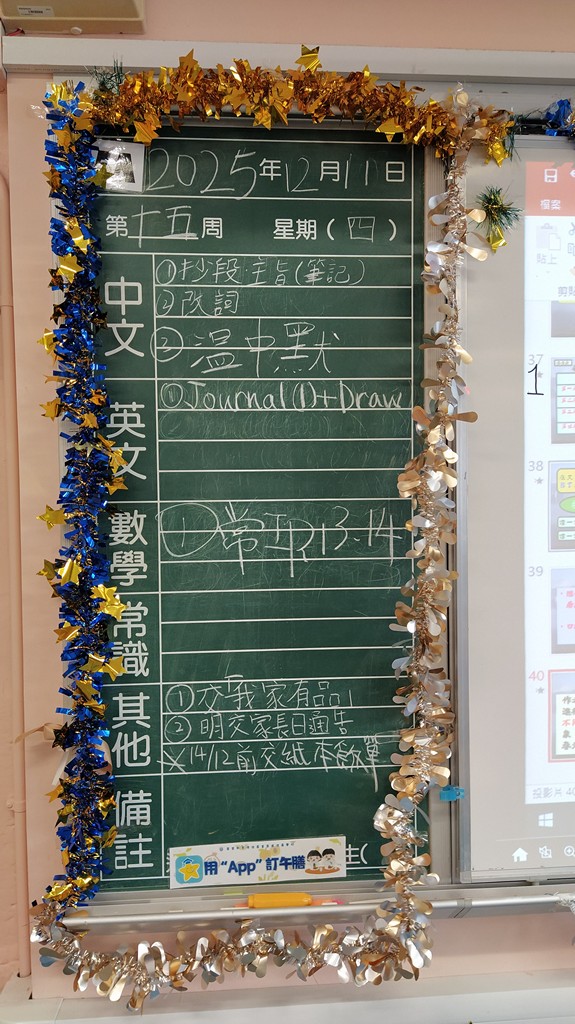 2025年12月11日
第十五周 星期(四)
中文
①抄段主旨(筆記)
②改詞
②溫中默
英文
①Journal(1)+Draw
數學
①常TR13-14
常識
其他
①交我家有品
②明交家長日通告
※14/12前交紙本飯單
備註
用“App”訂午膳
生(
檔案
貼上
剪貼
37
1
38
39
40
投影片 40